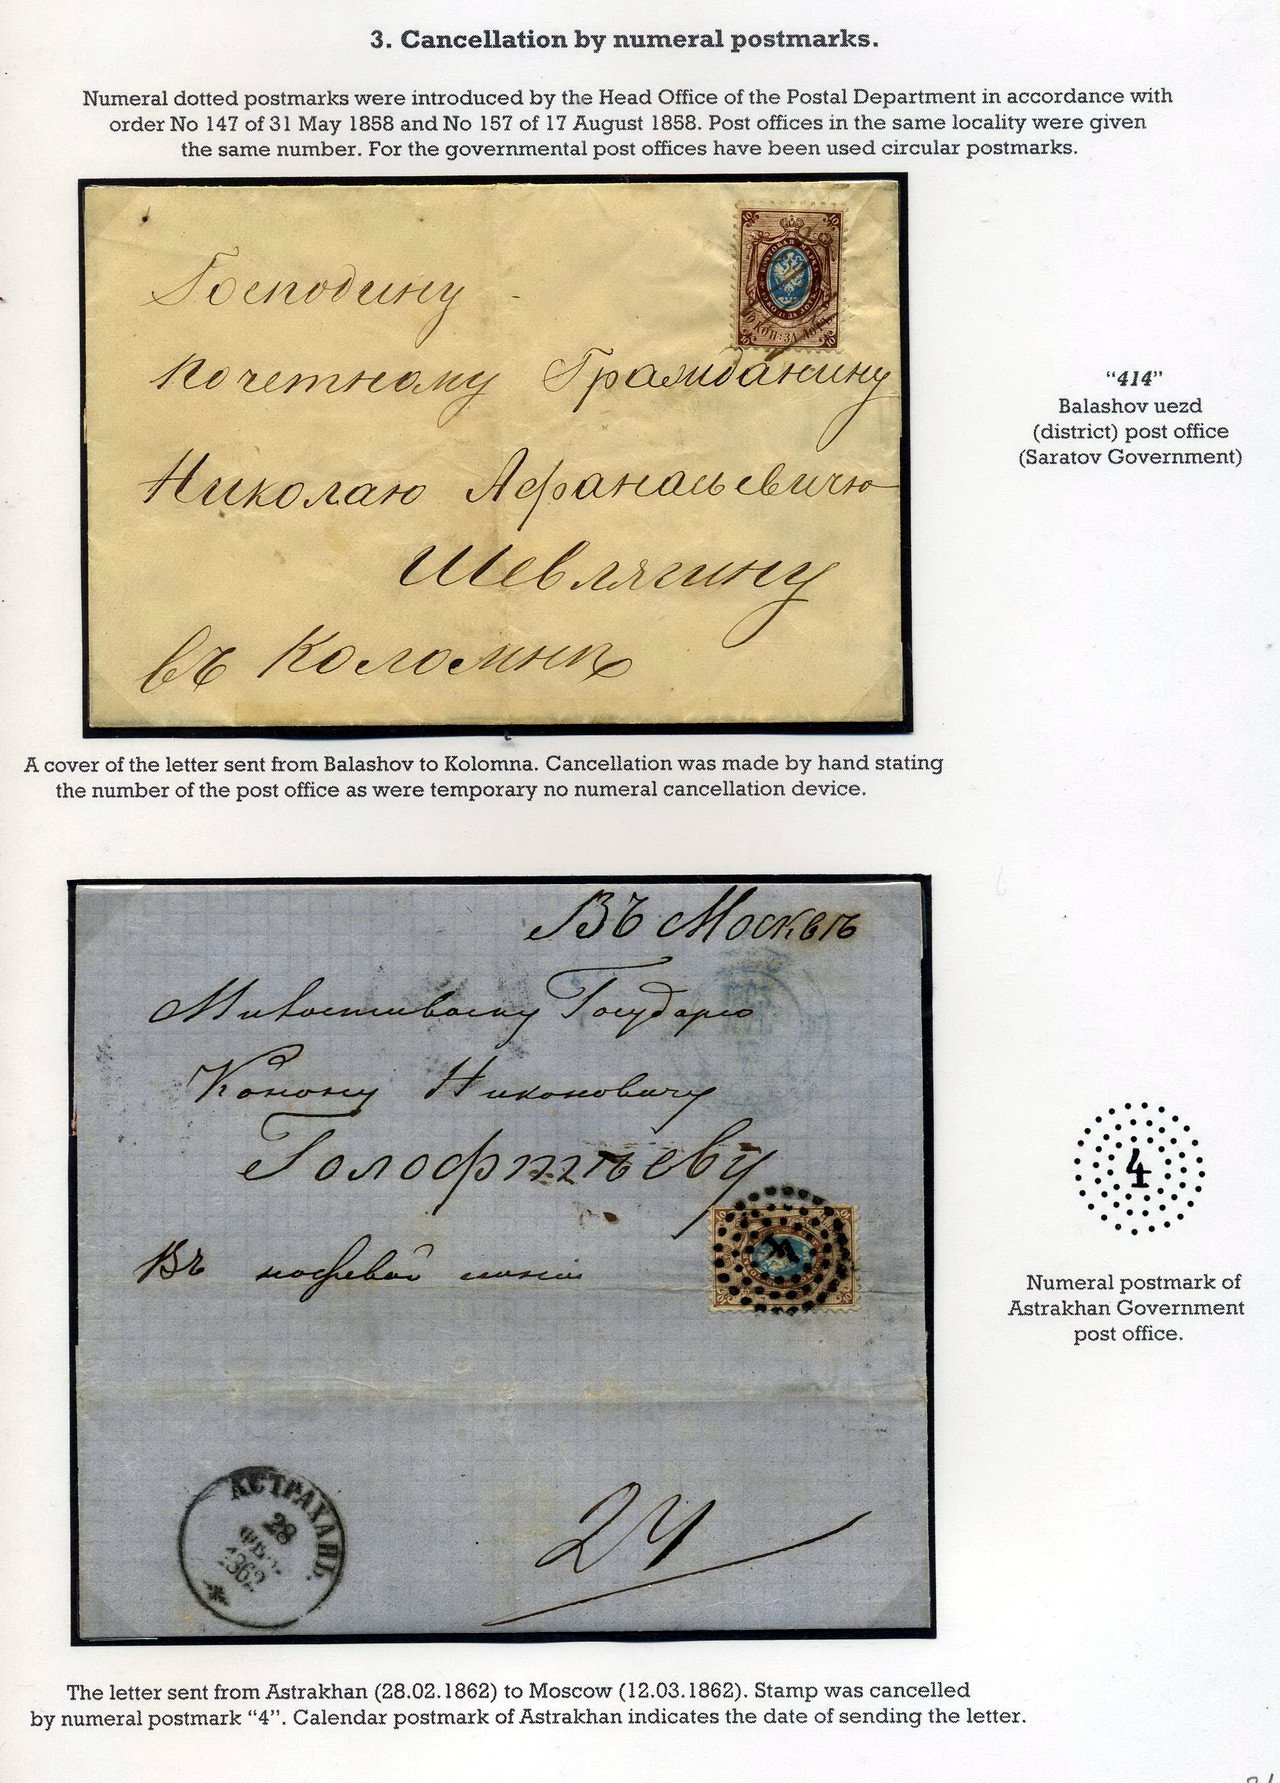 3. Cancellation by numeral postmarks.
Numeral dotted postmarks were introduced by the Head Office of the Postal Department in accordance with
order No 147 of 31 May 1858 and No 157 of 17 August 1858. Post offices in the same locality were given
the same number. For the governmental post offices have been used circular postmarks.
Господину
почетному Гражданину
Николаю Афанасьевичю
Шевлягину
въ Коломнѣ
10 10
10 КОП: ЗА ЛОТЪ
10 10
“414”
Balashov uezd
(district) post office
(Saratov Government)
A cover of the letter sent from Balashov to Kolomna. Cancellation was made by hand stating
the number of the post office as were temporary no numeral cancellation device.
Въ Москвѣ
Милостивому Государю
Конону Никоновичу
Голофтѣеву
Въ
4
Numeral postmark of
Astrakhan Government
post office.
АСТРАХАНЬ.
28
ФЕВ.
1862
24
The letter sent from Astrakhan (28.02.1862) to Moscow (12.03.1862). Stamp was cancelled
by numeral postmark “4”. Calendar postmark of Astrakhan indicates the date of sending the letter.